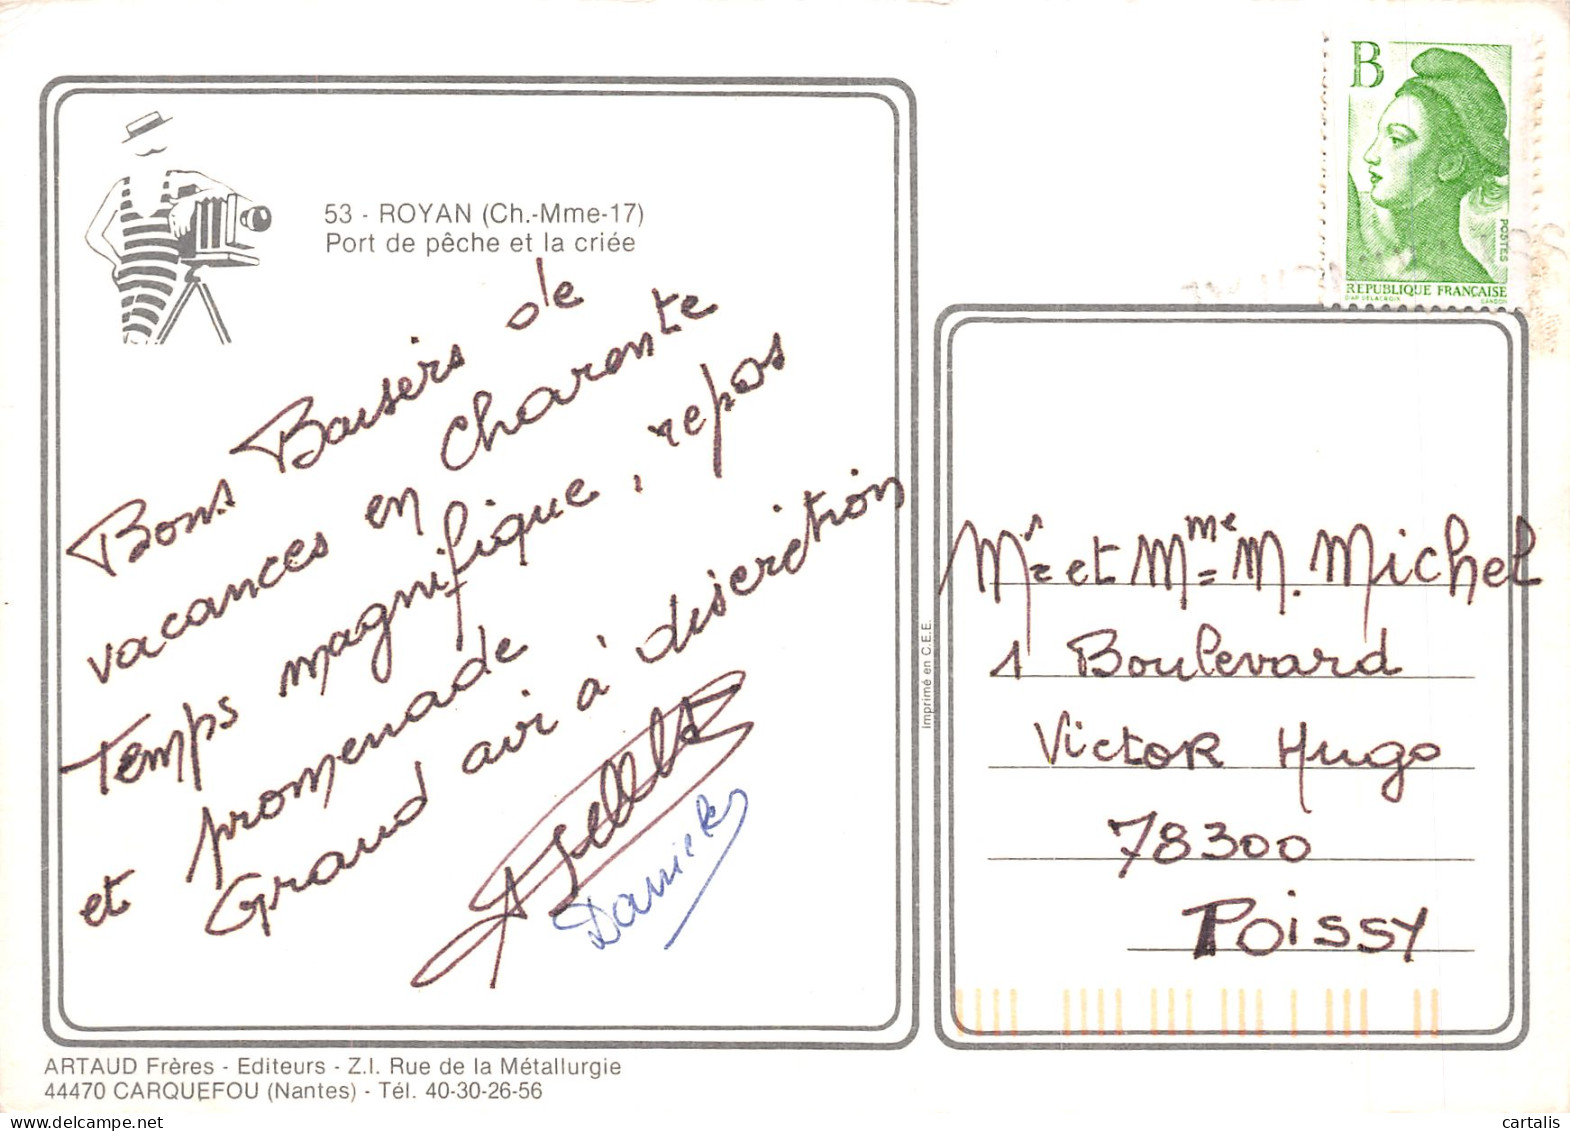 B
POSTES
REPUBLIQUE FRANÇAISE
53 - ROYAN (Ch.-Mme-17)
Port de pêche et la criée
Bons Baisers de
vacances en Charente
Temps magnifique, repos
et promenade
Grand air à discrétion
Daniele
Mr et Mme M. Michel
1 Boulevard
Victor Hugo
78300
POISSY
Imprimé en C.E.E.
ARTAUD Frères - Editeurs - Z.I. Rue de la Métallurgie
44470 CARQUEFOU (Nantes) - Tél. 40-30-26-56
cartalis